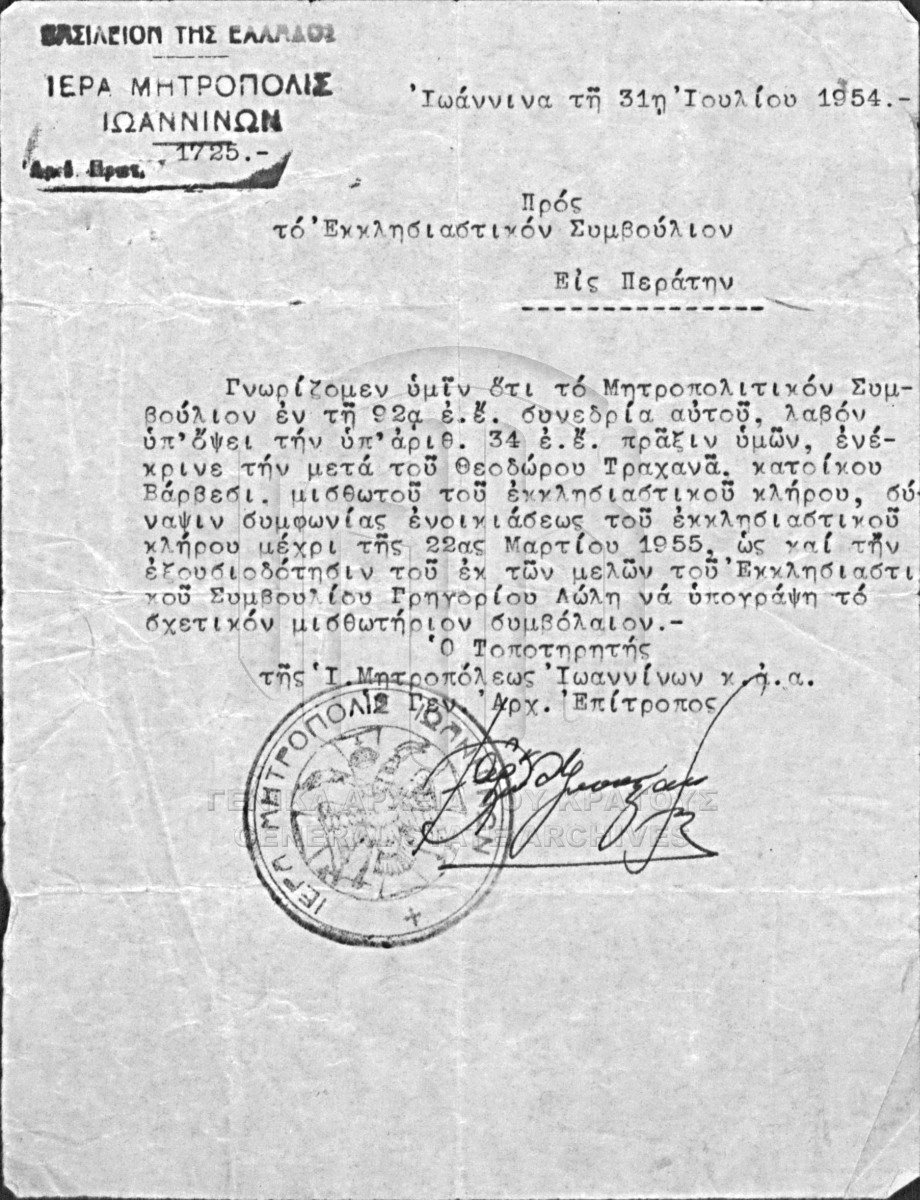 ΒΑΣΙΛΕΙΟΝ ΤΗΣ ΕΛΛΑΔΟΣ
ΙΕΡΑ ΜΗΤΡΟΠΟΛΙΣ
ΙΩΑΝΝΙΝΩΝ
Ἀριθ. Πρωτ. 1725.-
Ἰωάννινα τῇ 31ῃ Ἰουλίου 1954.-
Πρός
τό Ἐκκλησιαστικόν Συμβούλιον
Εἰς Περάτην
Γνωρίζομεν ὑμῖν ὅτι τό Μητροπολιτικόν Συμ-
βούλιον ἐν τῇ 92ᾳ ἐ.ἔ. συνεδρίᾳ αὐτοῦ, λαβόν
ὑπ' ὄψει τήν ὑπ' ἀριθ. 34 ἐ.ἔ. πρᾶξιν ὑμῶν, ἐνέ-
κρινε τήν μετά τοῦ Θεοδώρου Τραχανᾶ. κατοίκου
Βάρβεσι. μισθωτοῦ τοῦ ἐκκλησιαστικοῦ κλήρου, σύ-
ναψιν συμφωνίας ἐνοικιάσεως τοῦ ἐκκλησιαστικοῦ
κλήρου μέχρι τῆς 22ας Μαρτίου 1955, ὡς καί τήν
ἐξουσιοδότησιν τοῦ ἐκ τῶν μελῶν τοῦ Ἐκκλησιαστι
κοῦ Συμβουλίου Γρηγορίου Λώλη νά ὑπογράψῃ τό
σχετικόν μισθωτήριον συμβόλαιον.-
Ὁ Τοποτηρητής
τῆς Ἱ. Μητροπόλεως Ἰωαννίνων κ.ἀ.α.
Γεν. Ἀρχ. Ἐπίτροπος
ΙΕΡΑ ΜΗΤΡΟΠΟΛΙΣ ΙΩΑΝΝΙΝΩΝ
ΓΕΝΙΚΑ ΑΡΧΕΙΑ ΤΟΥ ΚΡΑΤΟΥΣ
GENERAL STATE ARCHIVES